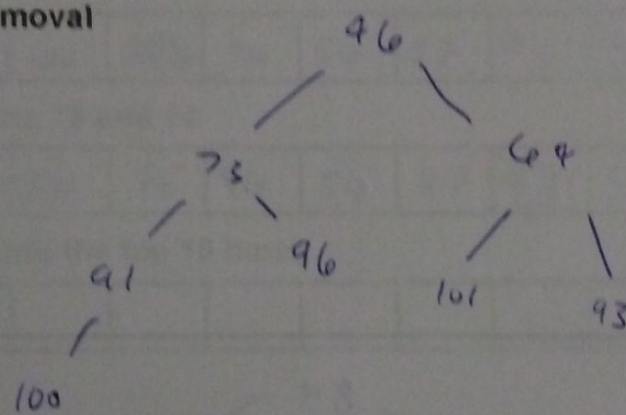 moval
46
73 64
91 96 101 93
100